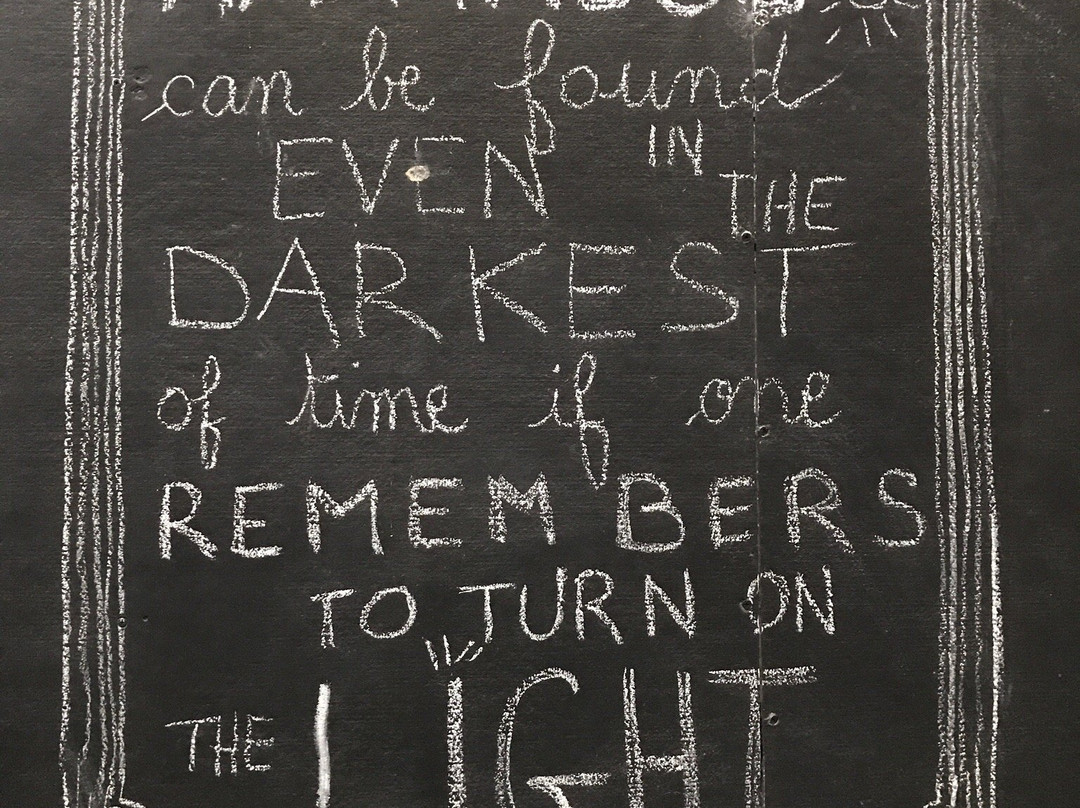 can be found
EVEN IN THE
DARKEST
of time if one
REMEMBERS
TO TURN ON
THE LIGHT